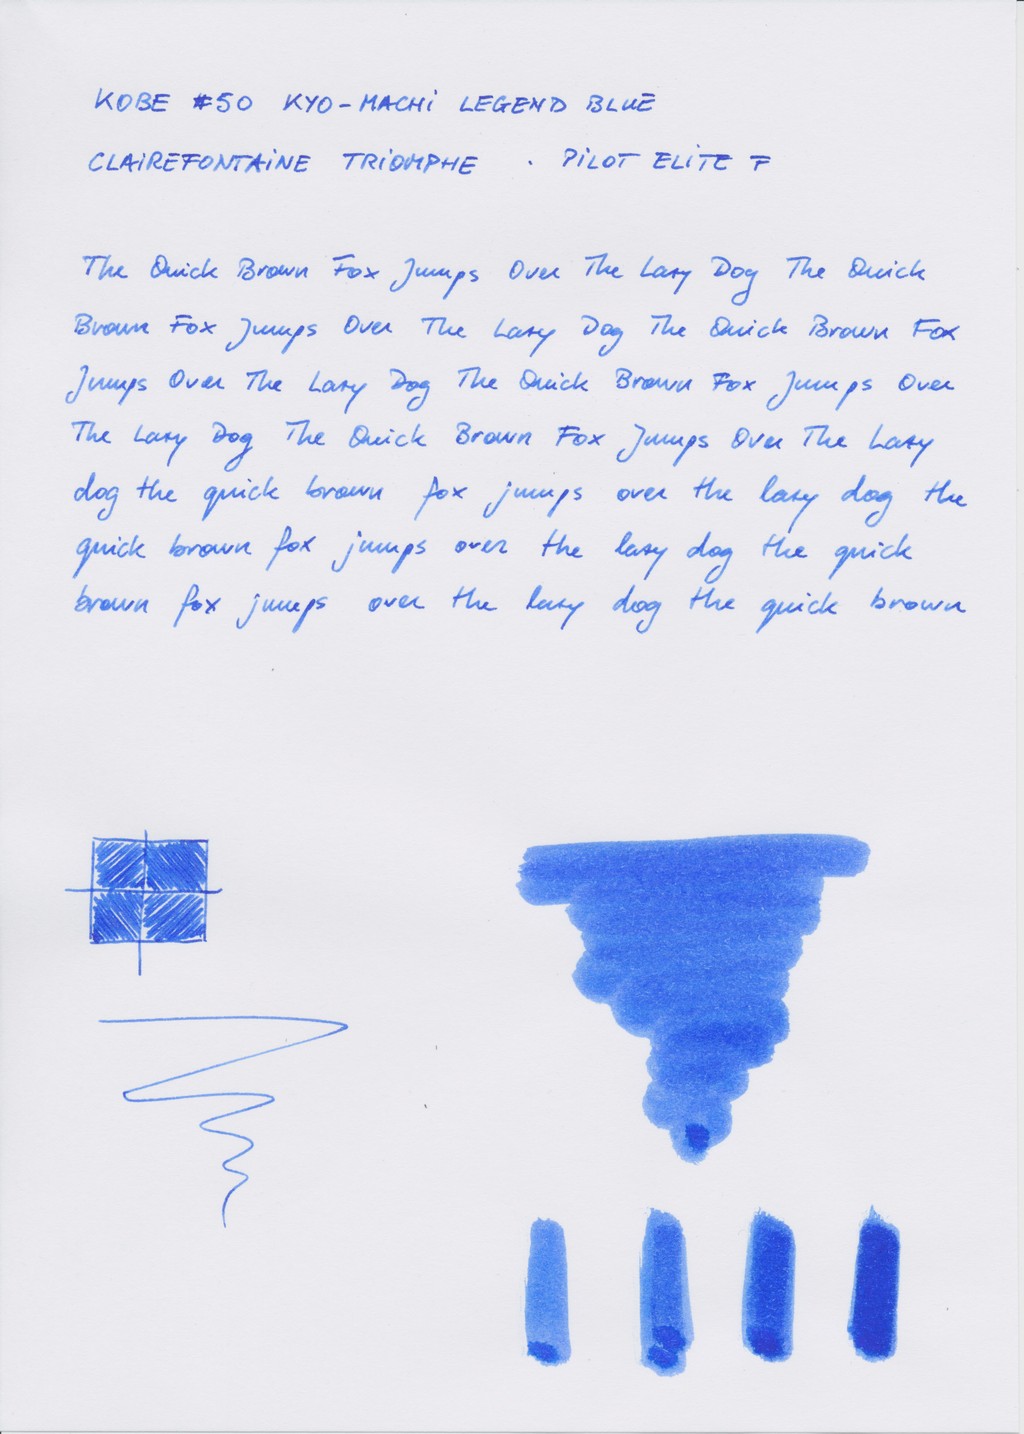 KOBE #50 KYO-MACHI LEGEND BLUE
CLAIREFONTAINE TRIOMPHE · PILOT ELITE F
The Quick Brown Fox Jumps Over The Lazy Dog The Quick
Brown Fox Jumps Over The Lazy Dog The Quick Brown Fox
Jumps Over The Lazy Dog The Quick Brown Fox Jumps Over
The Lazy Dog The Quick Brown Fox Jumps Over The Lazy
dog the quick brown fox jumps over the lazy dog the
quick brown fox jumps over the lazy dog the quick
brown fox jumps over the lazy dog the quick brown